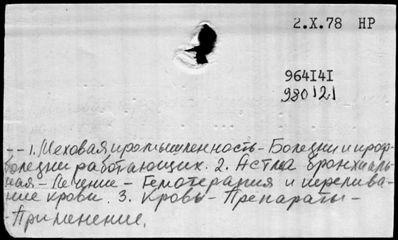 2.X.78 НР
964141
980121
-- 1. Меховая промышленность - Болезни и проф-
болезни работающих. 2. Астма бронхиаль-
ная - Лечение - Гемотерапия и перелива-
ние крови. 3. Кровь - Препараты -
- Применение.